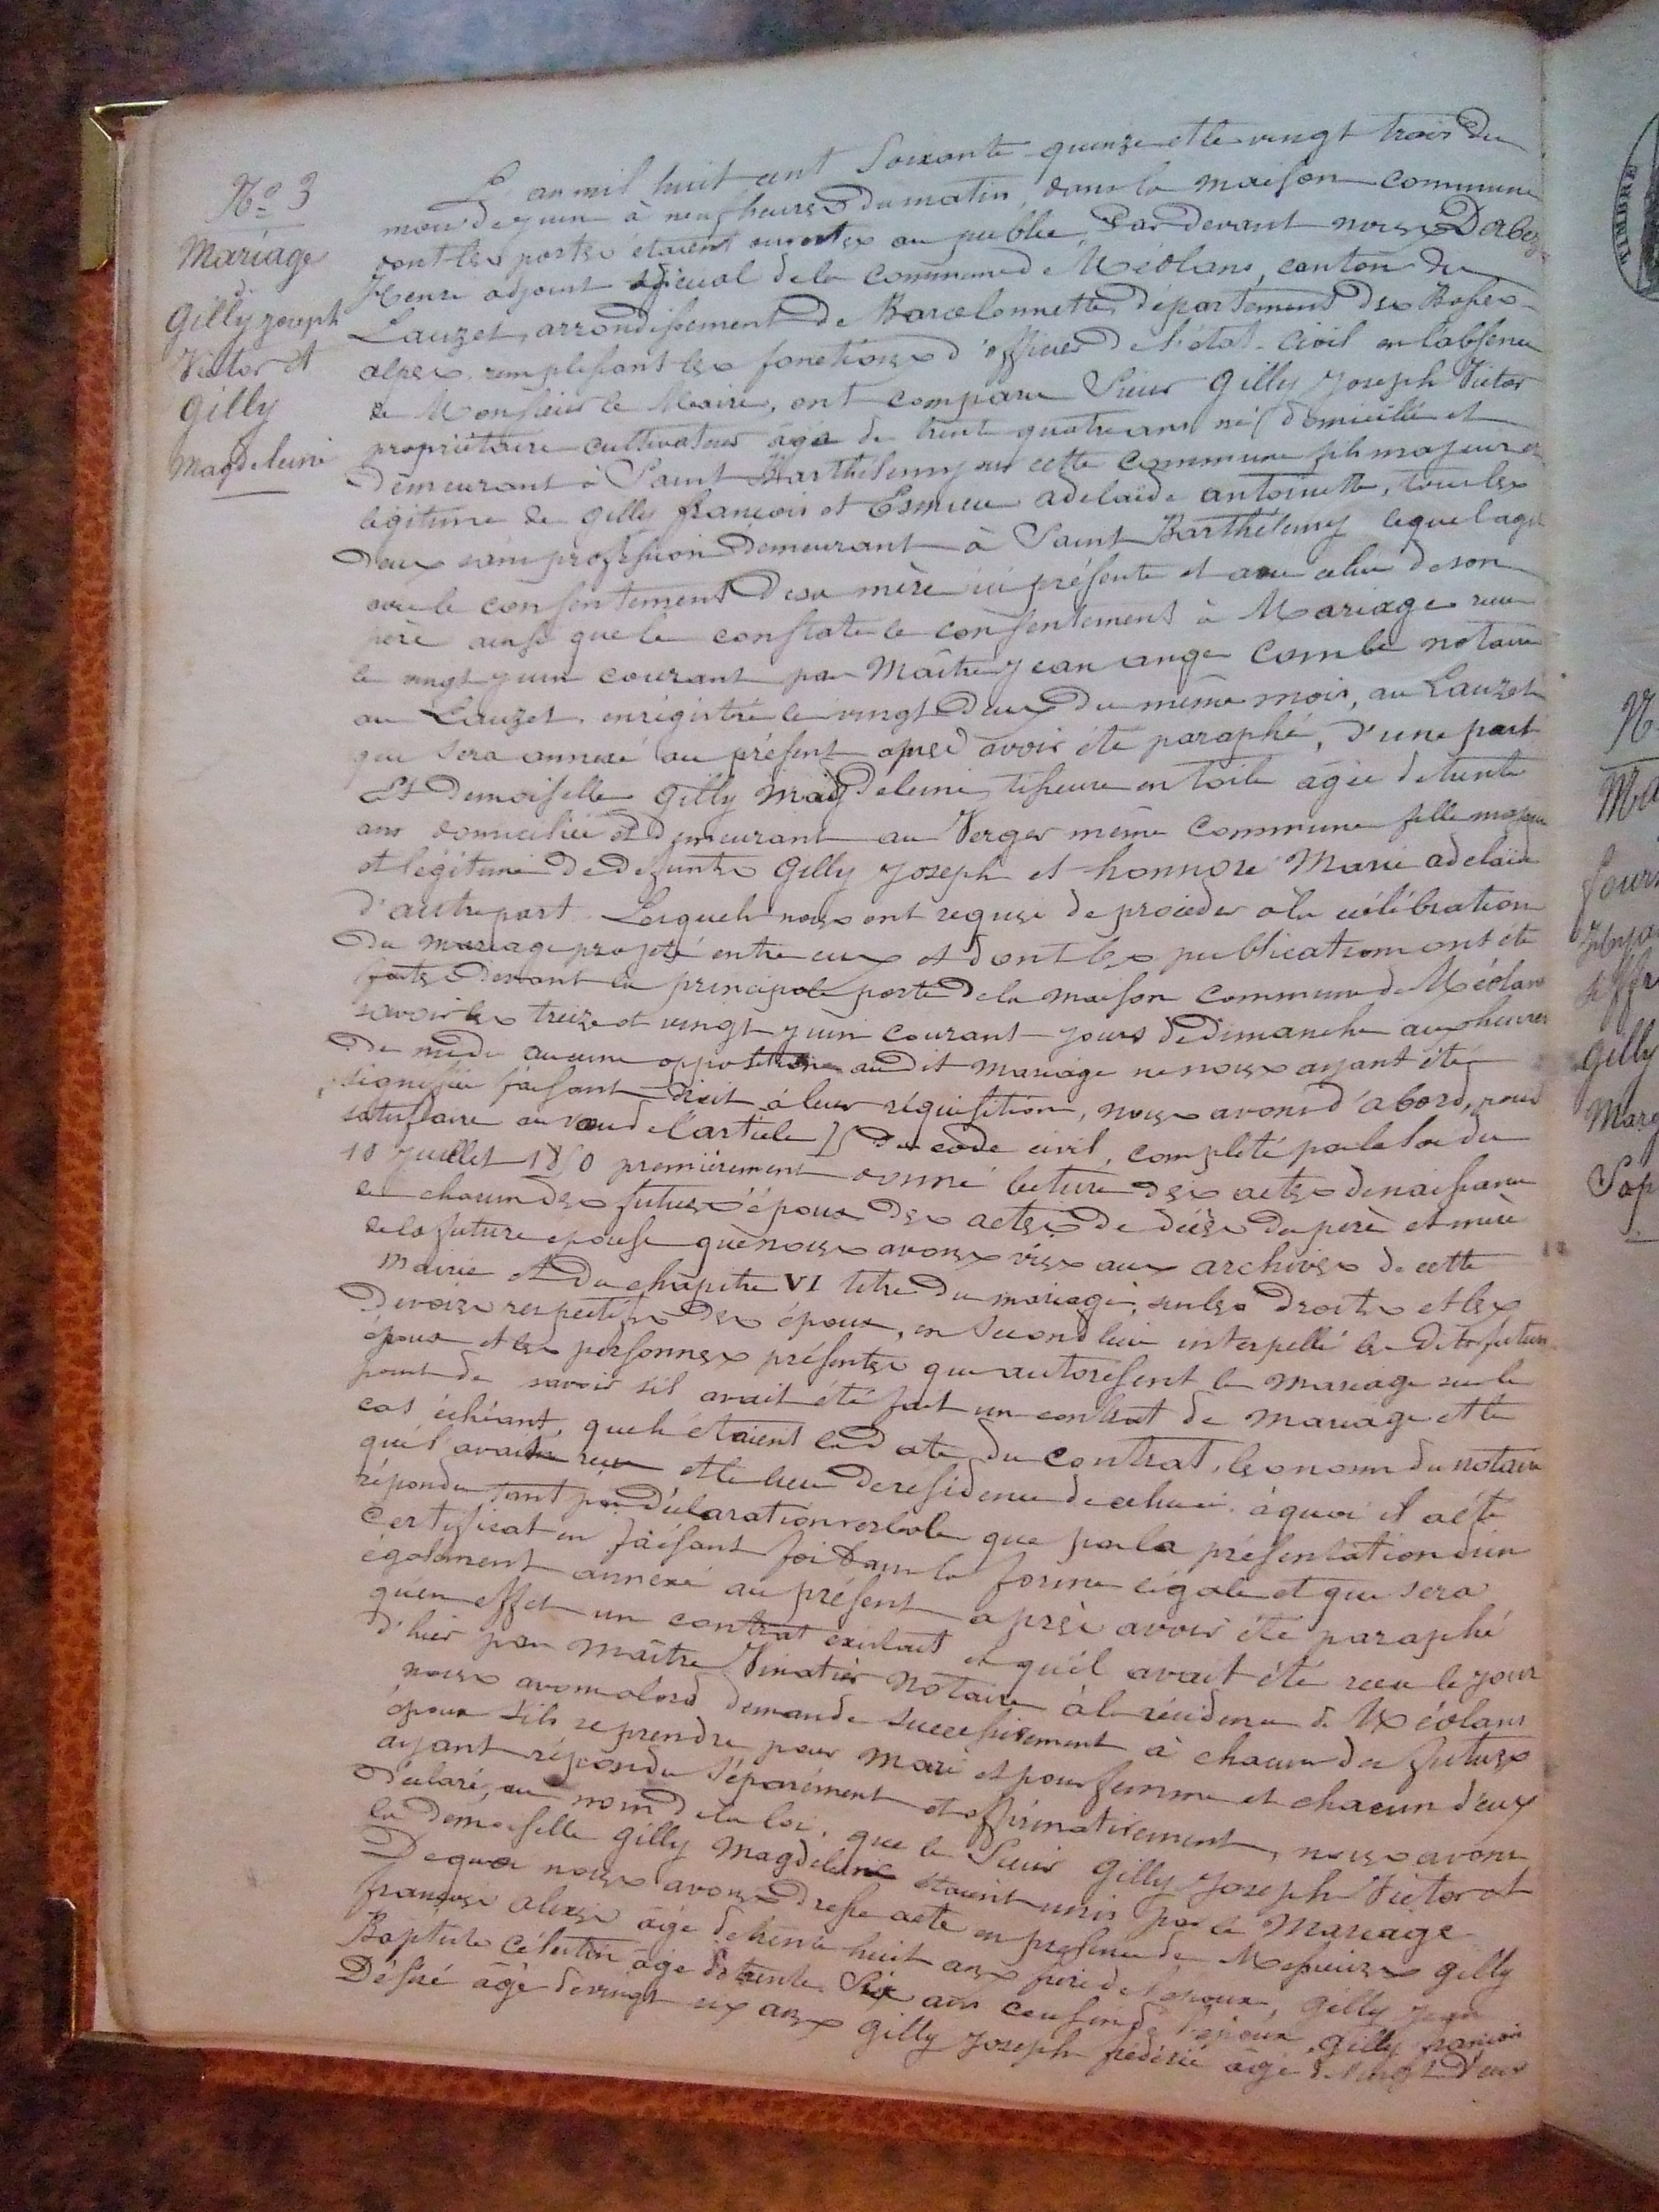 N° 3
Mariage
de
Gilly Joseph
Victor et
Gilly
Magdeleine
L'an mil huit cent soixante quinze et le vingt trois du
mois de juin à neuf heures du matin, dans la maison commune
dont les portes étaient ouvertes au public, Par devant nous Derbez
Henri adjoint spécial de la commune de Méolans, canton du
Lauzet, arrondissement de Barcelonnette département des Basses
alpes, remplissant les fonctions d'officier de l'état-civil en l'absence
de Monsieur le Maire, ont comparu Sieur Gilly Joseph Victor
propriétaire cultivateur âgé de trente quatre ans né domicilié et
demeurant à Saint Barthélemy en cette commune fils majeur et
légitime de Gilly françois et Esmieu adelaïde antoinette, tous les
deux sans profession demeurant à Saint Barthélemy lequel agit
avec le consentement de sa mère ici présente et avec celui de son
père ainsi que le constate le consentement à Mariage reçu
le vingt juin courant par Maître Jean ange Combe notaire
au Lauzet, enrégistré le vingt deux du même mois, au Lauzet
qui sera annexé au présent après avoir été paraphé, d'une part
Et demoiselle Gilly Magdeleine, tisseuse en toile âgée de trente
ans domiciliée et demeurant au Verger même commune fille majeure
et légitime de defunts Gilly Joseph et honnoré Marie adelaïde
d'autre part. Lesquels nous ont requis de procéder à la célébration
du mariage projeté entre eux et dont les publications ont été
faites devant la principale porte de la maison commune de Méolans
savoir les treize et vingt juin courant jours de dimanche aux heures
de midi aucune opposition audit mariage ne nous ayant été
signifiée faisant droit à leur réquisition, nous avons d'abord, pour
satisfaire au vœu de l'article 75 du code civil, complété par la loi du
10 juillet 1850 premièrement donné lecture des actes de naissance
de chacun des futurs époux des actes de décès du père et mère
de la future épouse que nous avons vis aux archives de cette
Mairie et du chapitre VI titre du mariage, sur les droits et les
devoirs respectifs des époux, en second lieu interpellé les dits futurs
époux et les personnes présentes qui autorisent le mariage sur le
point de savoir s'il avait été fait un contrat de mariage et le
cas échéant, quels étaient la date du contrat, les nom du notaire
qui l'avait reçu et le lieu de residence de celui-ci. à quoi il a été
répondu tant par déclaration verbale que par la présentation d'un
certificat en faisant foi dans la forme légale et qui sera
également annexé au présent après avoir été paraphé
qu'en effet un contrat existait et qu'il avait été reçu le jour
d'hier par Maître Vinatier Notaire à la résidence de Méolans
nous avons alors demandé successivement à chacun des futurs
époux s'ils se prendre pour mari et pour femme et chacun d'eux
ayant répondu séparément et affirmativement, nous avons
déclaré, au nom de la loi, que le Sieur Gilly Joseph Victor et
la demoiselle Gilly Magdeleine étaient unis par le Mariage
De quoi nous avons dressé acte en présence de Messieurs Gilly
françois alexis âgé de trente huit ans frère de l'époux, Gilly Jean
Baptiste Célestin âgé de trente Six ans cousin de l'époux, Gilly françois
Désiré âgé de vingt six ans Gilly Joseph frédéric âgé de vingt deux
TIMBRE
N
Ma
Gilly